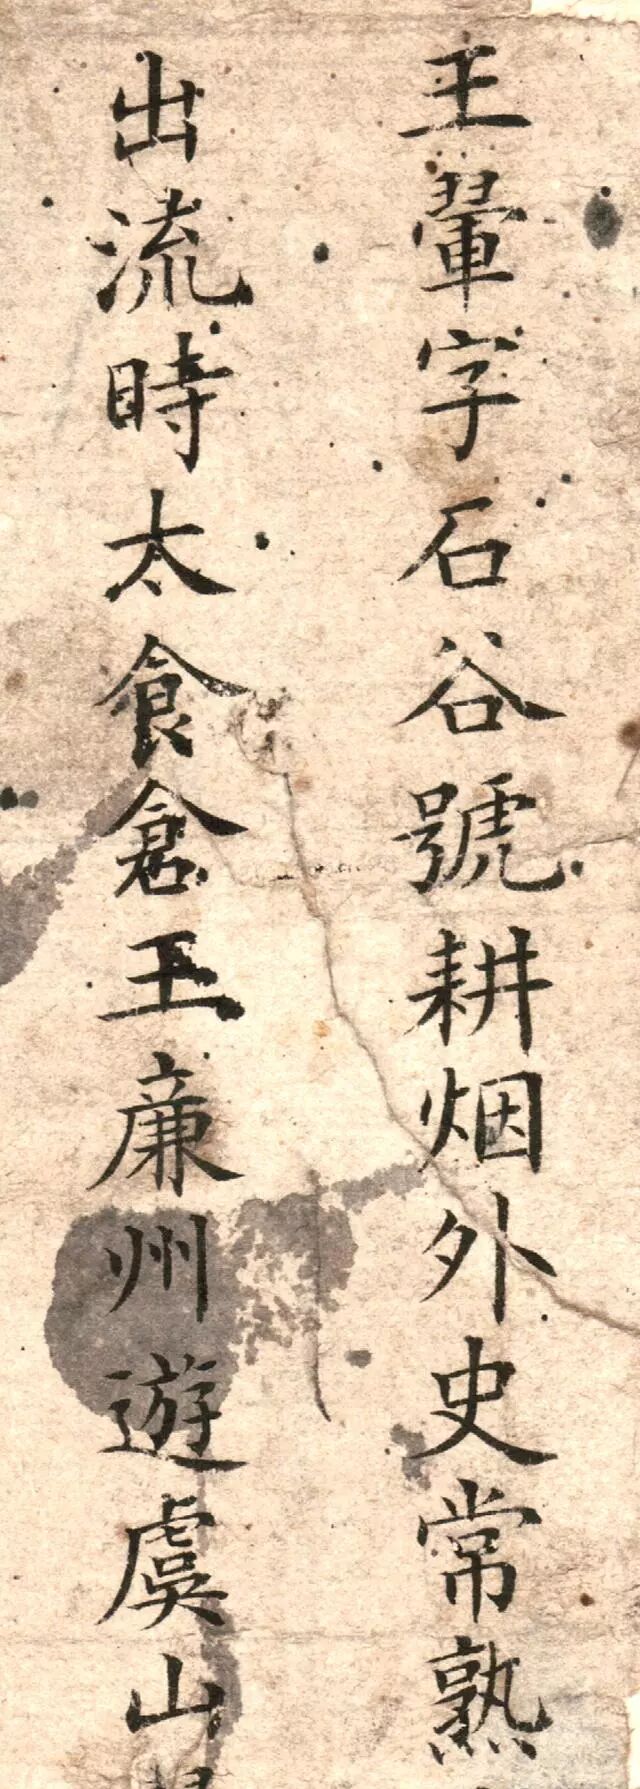 王翬字石谷號耕烟外史常熟
出流時太食倉王廉州遊虞山